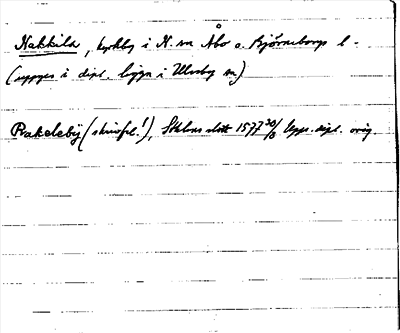 Nakkila, kyrkby i N. sn Åbo o. Björneborgs l.
(uppges i dipl. ligga i Ulvsby sn)
Rakeleby (skrivfel!), Sthlms slott 1577 30/8 Upps. dipl. orig.